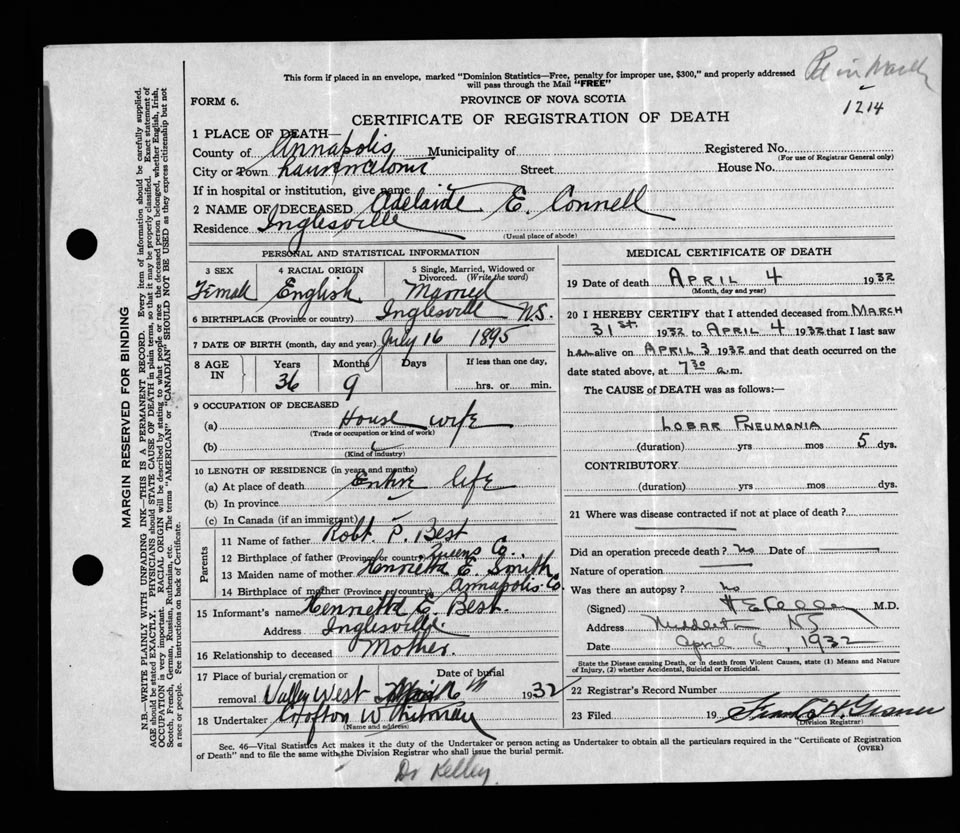 This form if placed in an envelope, marked "Dominion Statistics—Free, penalty for improper use, $300," and properly addressed
will pass through the Mail "FREE"
1214
FORM 6.
PROVINCE OF NOVA SCOTIA
CERTIFICATE OF REGISTRATION OF DEATH
1 PLACE OF DEATH—
County of Annapolis Municipality of Registered No.
(For use of Registrar General only)
City or Town Street House No.
If in hospital or institution, give name
2 NAME OF DECEASED Adelaide E. Connell
Residence Inglesville
(Usual place of abode)
MARGIN RESERVED FOR BINDING
N.B.—WRITE PLAINLY WITH UNFADING INK—THIS IS A PERMANENT RECORD. Every item of information should be carefully supplied.
AGE should be stated EXACTLY. PHYSICIANS should STATE CAUSE OF DEATH in plain terms, so that it may be properly classified. Exact statement of
OCCUPATION is very important. RACIAL ORIGIN will be described by stating to what people or race the deceased person belonged, whether English, Irish,
Scotch, French, German, Russian, Ruthenian, etc. The terms "AMERICAN" or "CANADIAN" SHOULD NOT BE USED as they express citizenship but not
a race or people. See instructions on back of Certificate.
PERSONAL AND STATISTICAL INFORMATION
3 SEX Female
4 RACIAL ORIGIN English
5 Single, Married, Widowed or
Divorced. (Write the word)
Married
6 BIRTHPLACE (Province or country) Inglesville N.S.
7 DATE OF BIRTH (month, day and year) July 16 1895
8 AGE IN Years 36 Months 9 Days
If less than one day,
hrs. or min.
9 OCCUPATION OF DECEASED
(a) House wife
(Trade or occupation or kind of work)
(b)
(Kind of industry)
10 LENGTH OF RESIDENCE (in years and months)
(a) At place of death Entire life
(b) In province
(c) In Canada (if an immigrant) —
Parents
11 Name of father Robt. P. Best
12 Birthplace of father (Province or country) Queens Co.
13 Maiden name of mother Henrietta E. Smith
14 Birthplace of mother (Province or country) Annapolis Co.
15 Informant's name Henrietta E. Best.
Address Inglesville
16 Relationship to deceased Mother.
17 Place of burial, cremation or Date of burial
removal Vally West 6th 1932
18 Undertaker Crofton W Whitman
(Name and address)
MEDICAL CERTIFICATE OF DEATH
19 Date of death APRIL 4 1932
(Month, day and year)
20 I HEREBY CERTIFY that I attended deceased from MARCH
31st 1932 to APRIL 4 1932 that I last saw
her alive on APRIL 3 1932 and that death occurred on the
date stated above, at 7 30 a.m.
The CAUSE of DEATH was as follows:—
LOBAR PNEUMONIA
(duration) yrs mos 5 dys.
CONTRIBUTORY
(duration) yrs mos dys.
21 Where was disease contracted if not at place of death?
Did an operation precede death? No Date of
Nature of operation
Was there an autopsy? No
(Signed) H E Kelley M.D.
Address Middleton NS
Date April 6, 1932
State the Disease causing Death, or in death from Violent Causes, state (1) Means and Nature
of Injury, (2) whether Accidental, Suicidal or Homicidal.
22 Registrar's Record Number
23 Filed 19
(Division Registrar)
Sec. 46—Vital Statistics Act makes it the duty of the Undertaker or person acting as Undertaker to obtain all the particulars required in the "Certificate of Registration
of Death" and to file the same with the Division Registrar who shall issue the burial permit.
(OVER)
Dr Kelley.